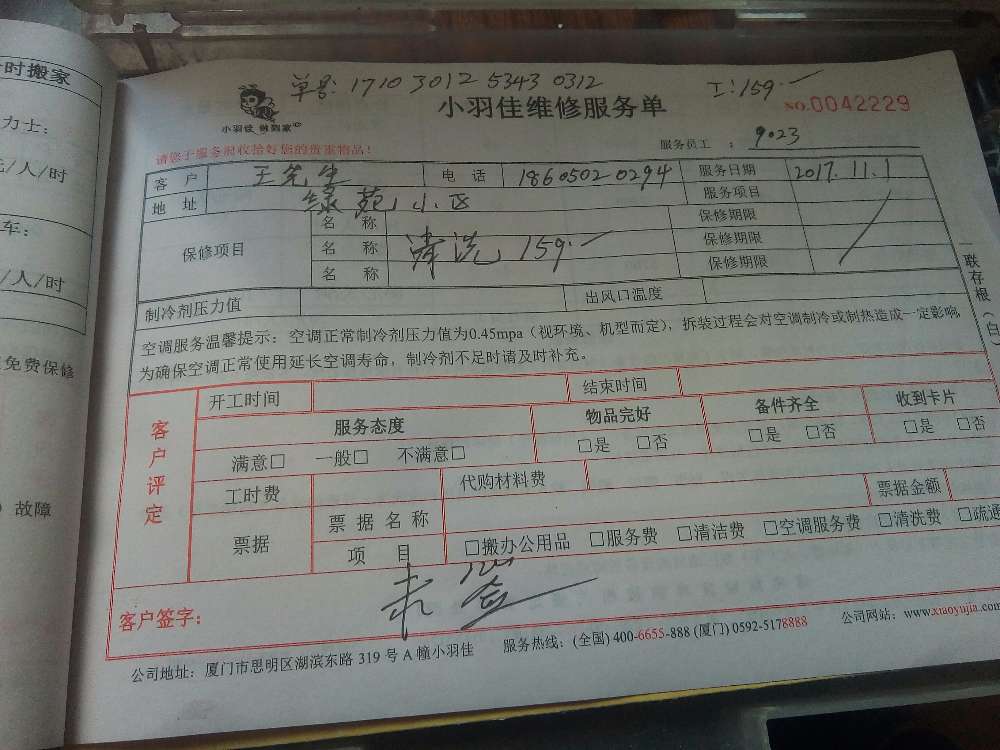 时搬家
力士：
元/人/时
车：
/人/时
免费保修
故障
单号：1710 3012 5343 0312
工：159.一
小羽佳 做到家
小羽佳维修服务单
NO.0042229
请您于服务前收拾好您的贵重物品！
服务员工：9023
客户 王先生 电话 18605020294 服务日期 2017.11.1
地址 绿苑小区 服务项目
保修项目 名称 保修期限
名称 清洗 159.一 保修期限
名称 保修期限
制冷剂压力值 出风口温度
空调服务温馨提示：空调正常制冷剂压力值为0.45mpa（视环境、机型而定），拆装过程会对空调制冷或制热造成一定影响，
为确保空调正常使用延长空调寿命，制冷剂不足时请及时补充。
一联存根（白）
客户评定
开工时间 结束时间
服务态度 物品完好 备件齐全 收到卡片
满意□ 一般□ 不满意□ □是 □否 □是 □否 □是 □否
工时费 代购材料费
票据 票据名称 票据金额
项目 □搬办公用品 □服务费 □清洁费 □空调服务费 □清洗费 □疏通
客户签字：
公司地址：厦门市思明区湖滨东路 319 号 A 幢小羽佳 服务热线：(全国) 400-6655-888 (厦门) 0592-5178888 公司网站：www.xiaoyujia.com